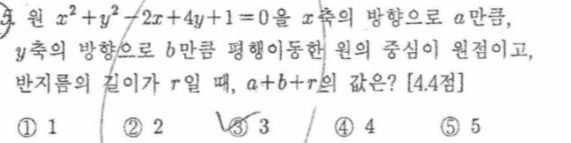 5. 원 x²+y²-2x+4y+1=0을 x축의 방향으로 a만큼,
y축의 방향으로 b만큼 평행이동한 원의 중심이 원점이고,
반지름의 길이가 r일 때, a+b+r의 값은? [4.4점]
① 1 ② 2 ③ 3 ④ 4 ⑤ 5